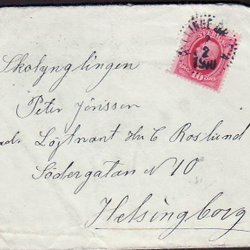 Skolynglingen
Peter Jönsson
Löjtnant C Roslund
Södergatan N 10
Helsingborg
2
10 10